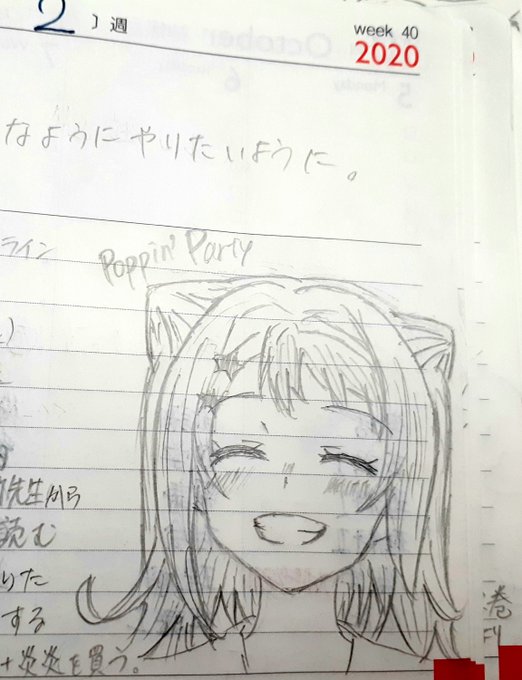 2
週
week 40
2020
なようにやりたいように。
ライン
Poppin' Party
先生から
読む
りた
する
炎炎を買う。
港